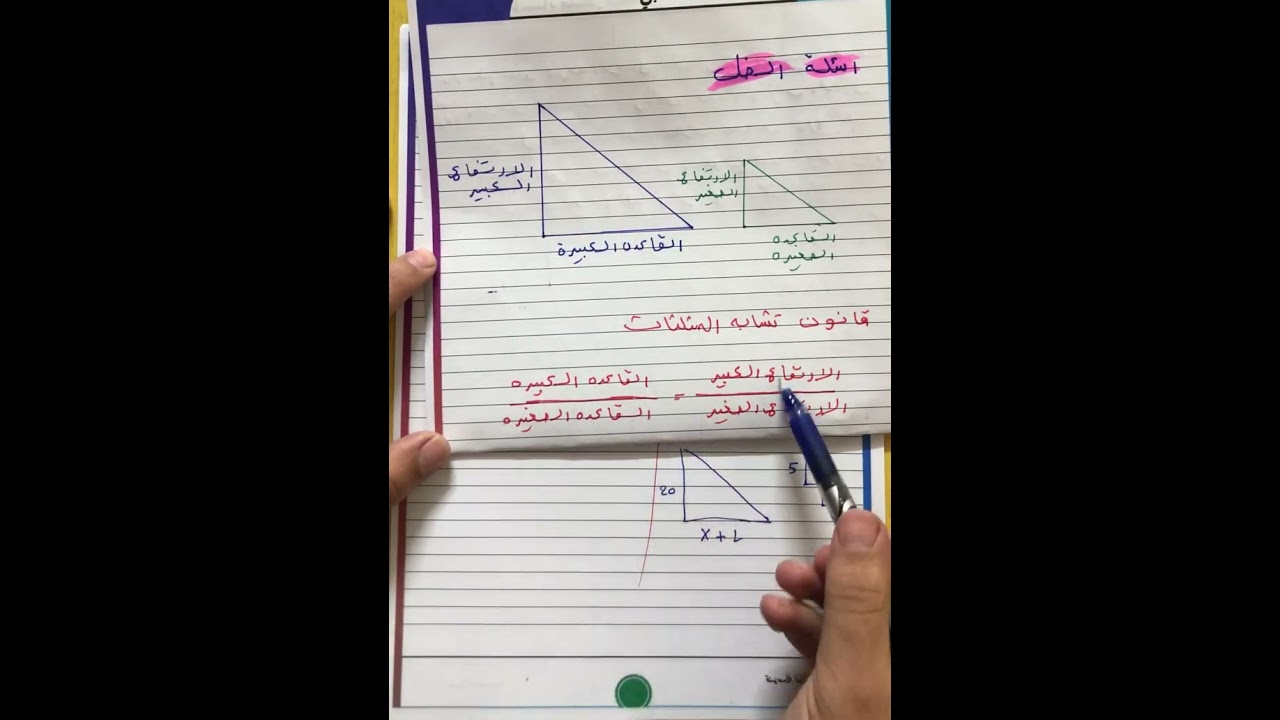 اسئلة الضل
الارتفاع
الكبير
القاعده الكبيرة
الارتفاع
الصغير
القاعده
الصغيره
قانون تشابه المثلثات
الارتفاع الكبير = القاعده الكبيره
الارتفاع الصغير القاعده الصغيره
20
X + L
5